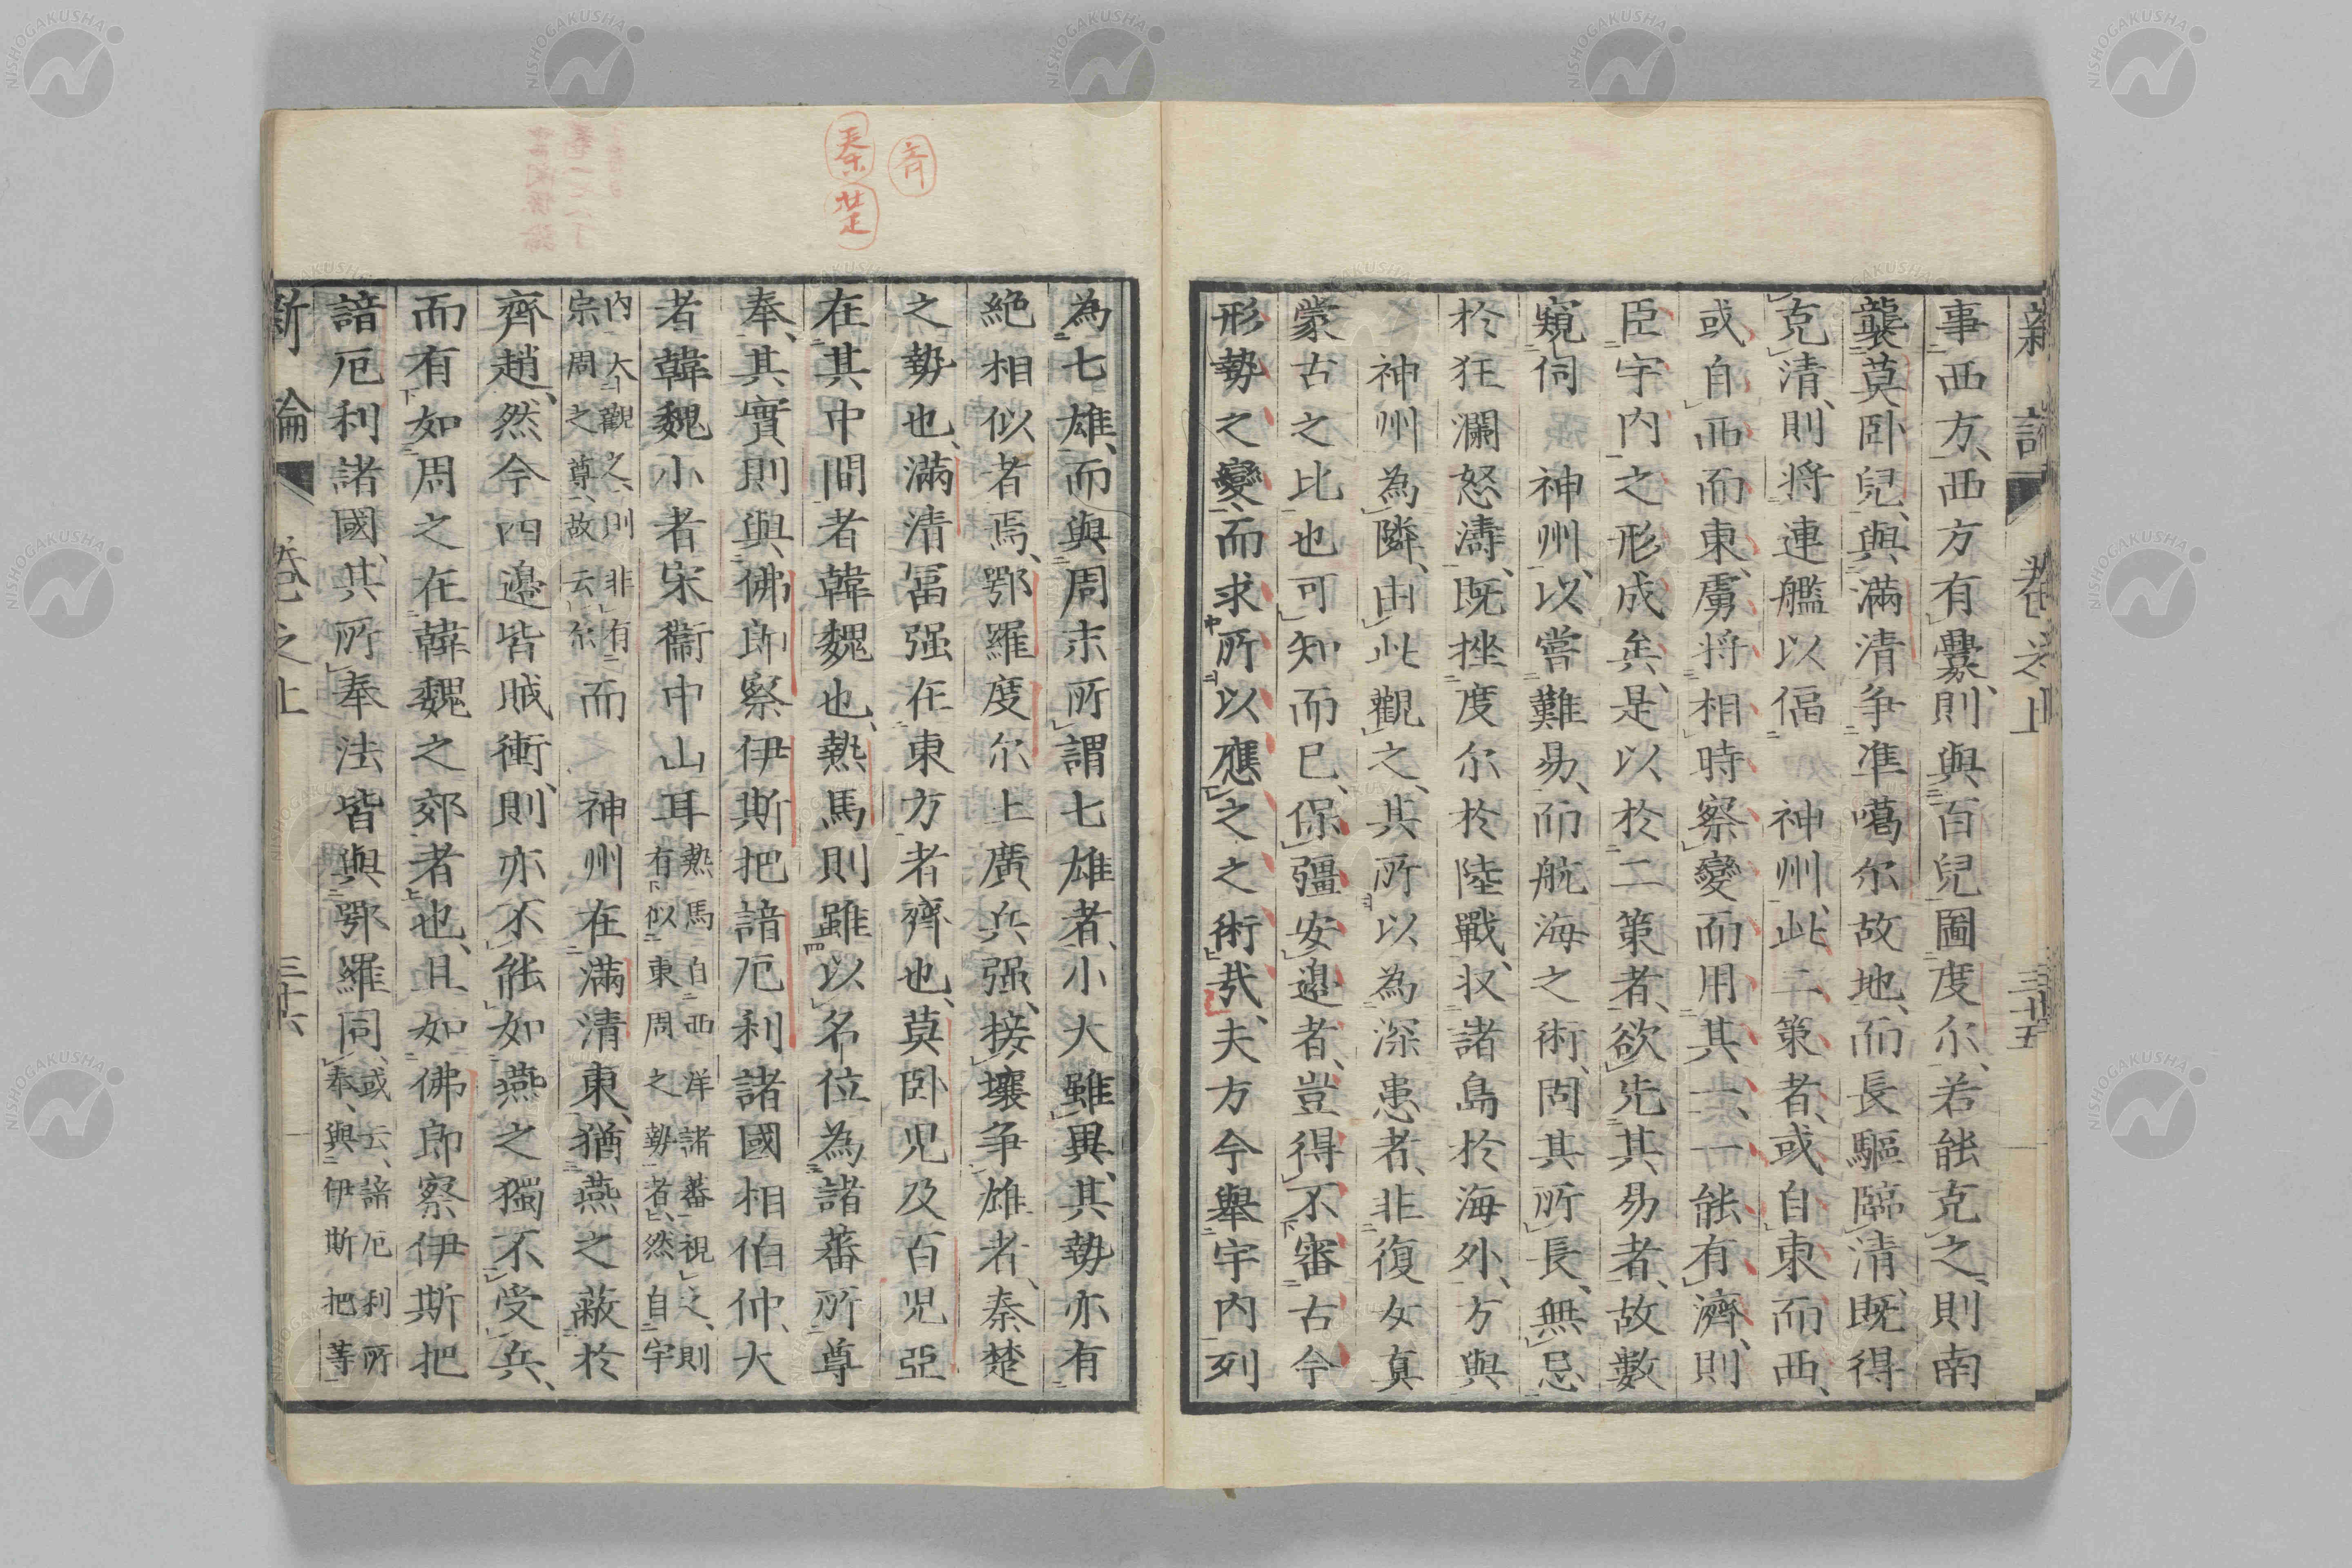 新論 卷之上 三十五
事西方、西方有釁、則與百兒圖度尓、若能克之、則南
襲莫臥兒、與滿清爭準噶尓故地、而長驅臨清、既得
克清、則將連艦以偪 神州、此二策者、或自東而西、
或自西而東、虜將相時察變而用其一、一能有濟、則
臣宇内之形成矣、是以於二策者、欲先其易者、故數
窺伺 神州、以嘗難易、而航海之術、固其所長、無忌
於狂瀾怒濤、既挫度尓於陸戰、收諸島於海外、方與
神州為隣、由此觀之、其所以為深患者、非復女真
蒙古之比也可知而已、保疆安邊者、豈得不審古今
形勢之變、而求所以應之之術哉、夫方今舉宇内列
齊
秦
楚
為七雄、而與周末所謂七雄者、小大雖異、其勢亦有
絶相似者焉、鄂羅度尓土廣兵强、接壤爭雄者、秦楚
之勢也、滿清冨强在東方者齊也、莫臥児及百児亞
在其中間者韓魏也、熱馬則雖以名位為諸蕃所尊
奉、其實則與佛郎察伊斯把諳厄利諸國相伯仲、大
者韓魏小者宋衞中山耳熱馬自西洋諸蕃視之、則有似東周之勢者、然自宇
内大觀之、則非有宗周之尊、故云尓而 神州在滿清東、猶燕之蔽於
齊趙、然今四邊皆賊衝、則亦不能如燕之獨不受兵、
而有如周之在韓魏之郊者也、且如佛郎察伊斯把
諳厄利諸國、其所奉法皆與鄂羅同、或云、諳厄利所奉、與伊斯把等
新論 卷之上 三十六